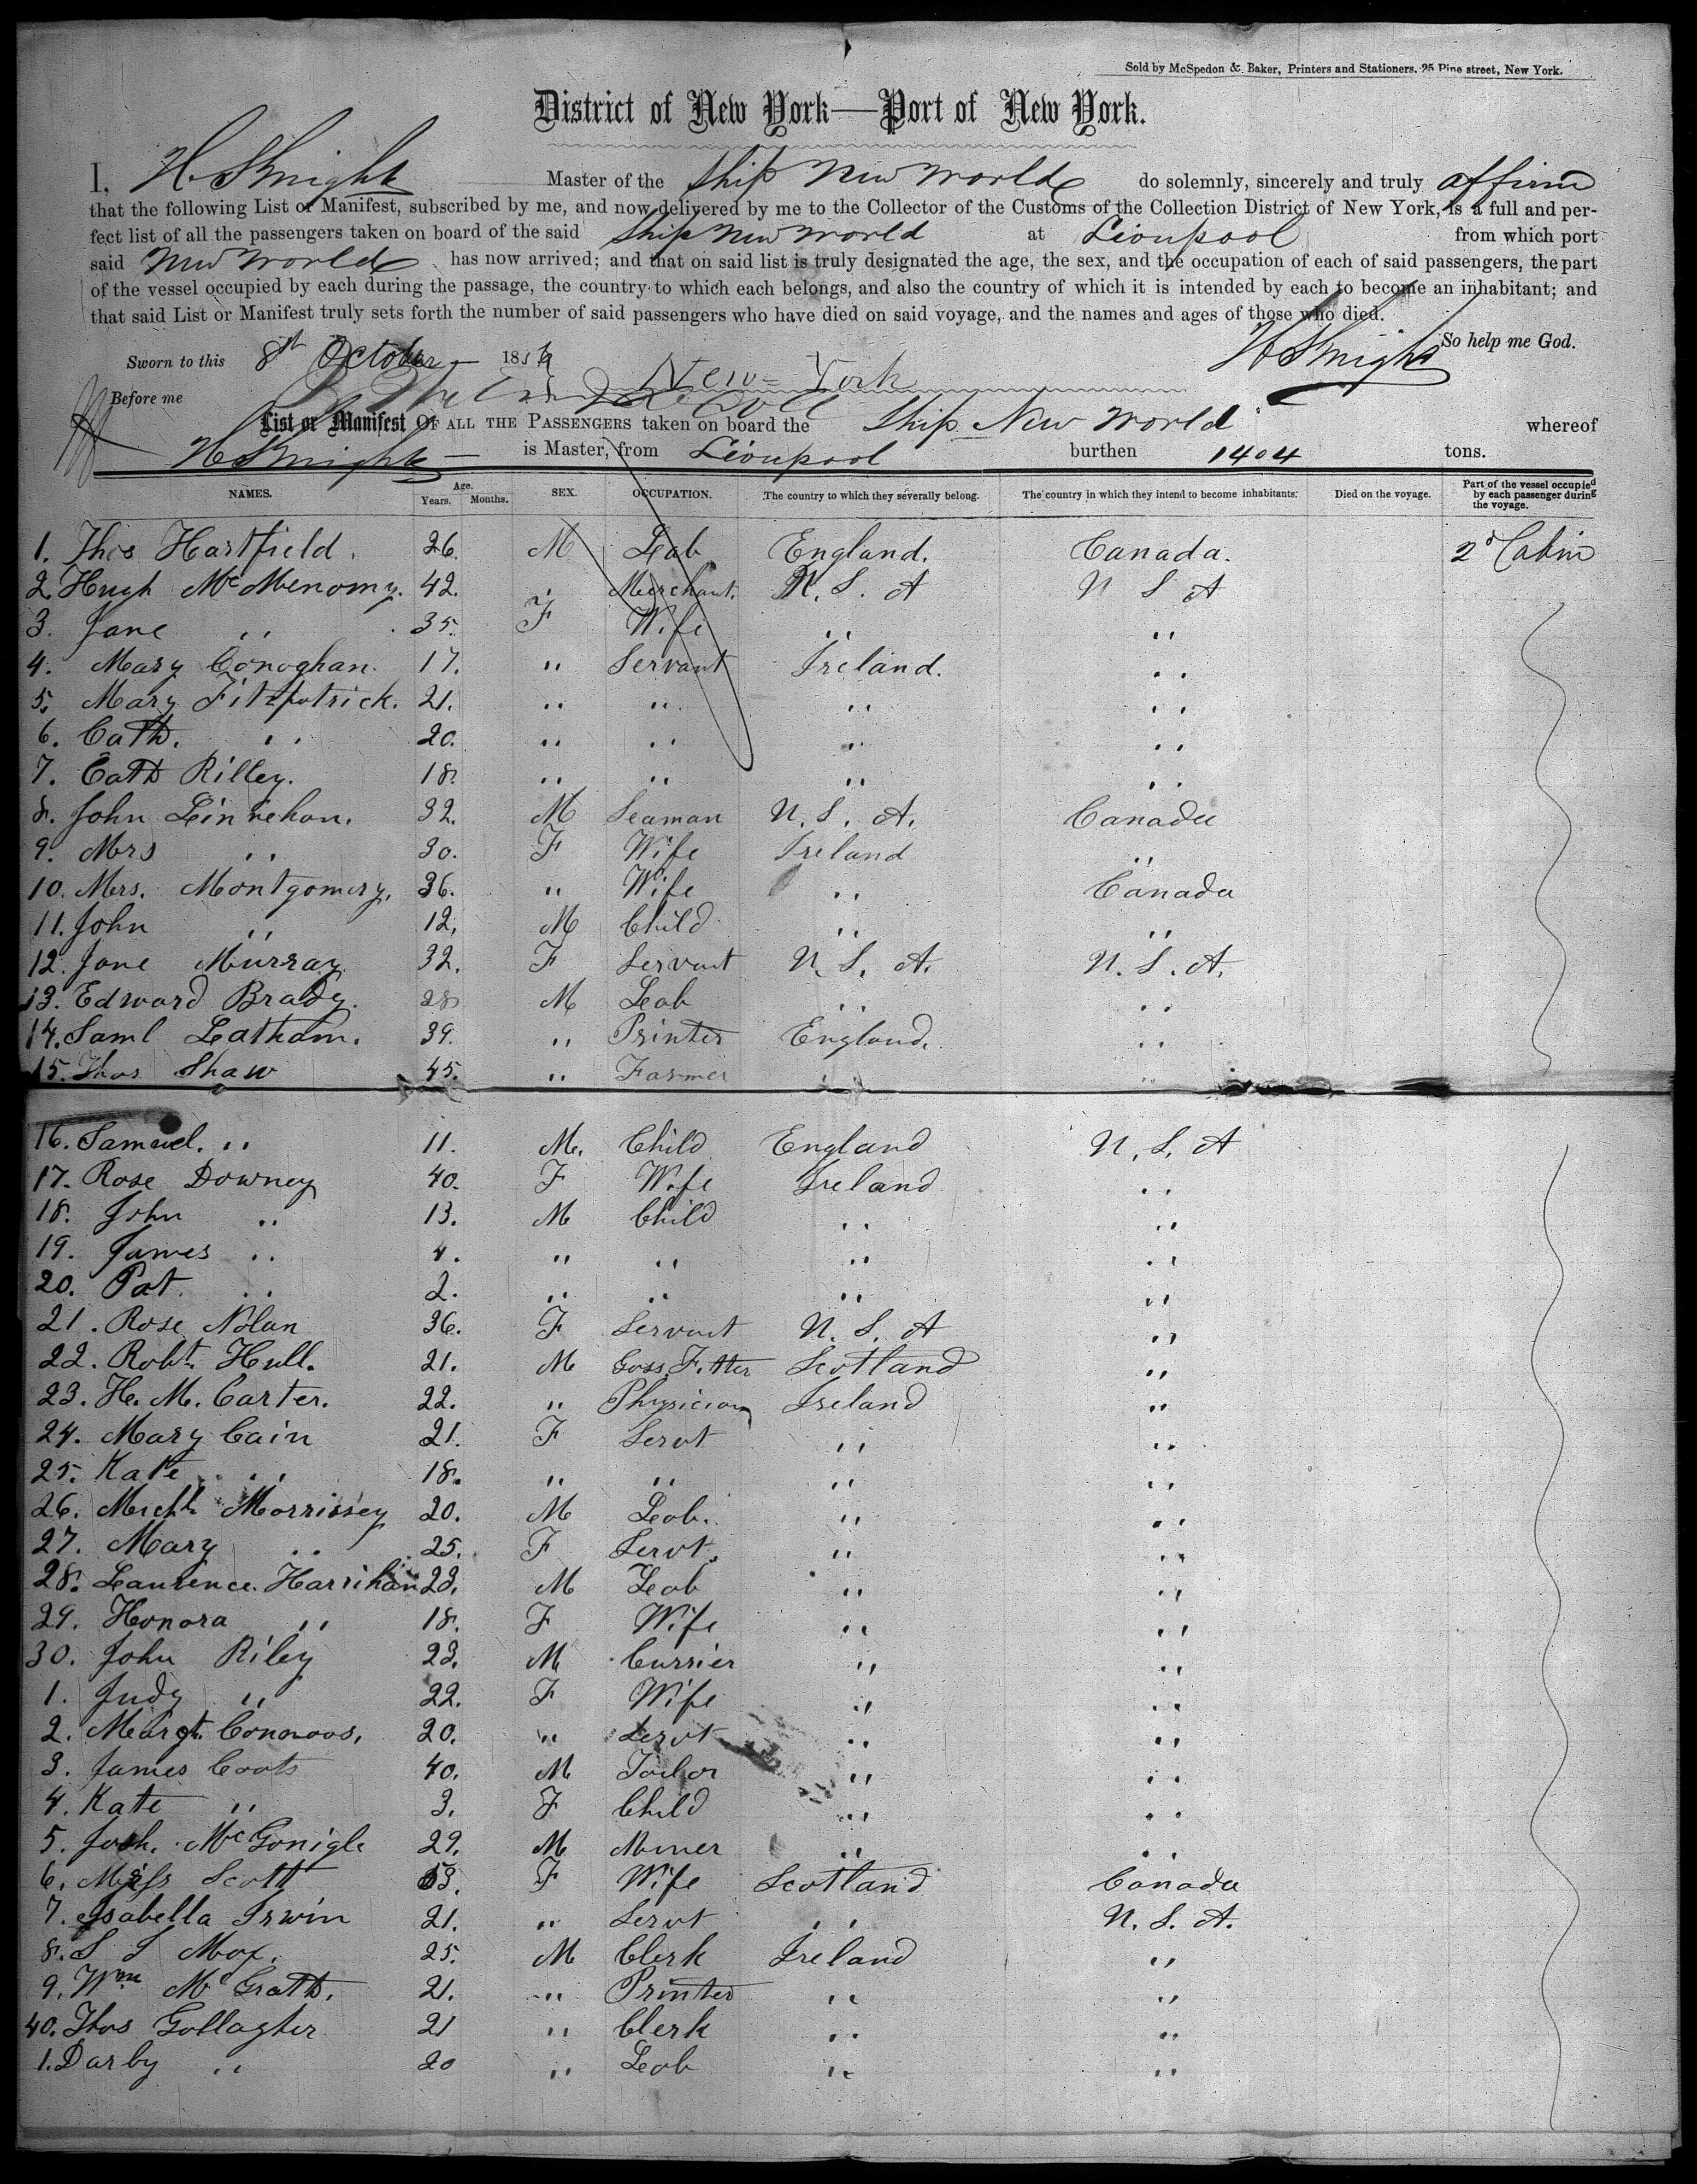 Sold by McSpedon & Baker, Printers and Stationers, 25 Pine street, New York.
District of New York—Port of New York.
I, H Knight Master of the Ship New World do solemnly, sincerely and truly affirm
that the following List or Manifest, subscribed by me, and now delivered by me to the Collector of the Customs of the Collection District of New York, is a full and per-
fect list of all the passengers taken on board of the said Ship New World at Liverpool from which port
said New World has now arrived; and that on said list is truly designated the age, the sex, and the occupation of each of said passengers, the part
of the vessel occupied by each during the passage, the country to which each belongs, and also the country of which it is intended by each to become an inhabitant; and
that said List or Manifest truly sets forth the number of said passengers who have died on said voyage, and the names and ages of those who died.
So help me God.
Sworn to this 8th October 185 H Knight
Before me New-York
List or Manifest OF ALL THE PASSENGERS taken on board the Ship New World whereof
H Knight is Master, from Liverpool burthen 1404 tons.
NAMES. Age. Years. Months. SEX. OCCUPATION. The country to which they severally belong. The country in which they intend to become inhabitants. Died on the voyage. Part of the vessel occupied by each passenger during the voyage.
1. Thos Hartfield. 26. M Lab England. Canada. 2d Cabin
2. Hugh McMenomy. 42. " Merchant. U. S. A U S A
3. Jane " 35. F Wife " "
4. Mary Conoghan. 17. " Servant Ireland. "
5. Mary Fitzpatrick. 21. " " " "
6. Cath. " 20. " " " "
7. Cath Rilley. 18. " " " "
8. John Linnehan. 32. M Seaman U. S. A. Canada
9. Mrs " 30. F Wife Ireland "
10. Mrs. Montgomery. 36. " Wife " Canada
11. John " 12. M Child " "
12. Jane Murray 32. F Servant U. S. A. U. S. A.
13. Edward Brady. 28 M Lab " "
14. Saml Latham. 39. " Printer England. "
15. Thos Shaw 45. " Farmer " "
16. Samuel. " 11. M. Child England U. S. A
17. Rose Downey 40. F Wife Ireland "
18. John " 13. M Child " "
19. James " 4. " " " "
20. Pat. " 2. " " " "
21. Rose Nolan 36. F Servant U. S. A "
22. Robt. Hull. 21. M Gass Fitter Scotland "
23. H. M. Carter. 22. " Physician Ireland "
24. Mary Cain 21. F Servt " "
25. Kate " 18. " " " "
26. Michl Morrissey 20. M Lab. " "
27. Mary " 25. F Servt. " "
28. Laurence Harrihan 23. M Lab " "
29. Honora " 18. F Wife " "
30. John Riley 23. M Currier " "
1. Judy " 22. F Wife " "
2. Margt. 20. " Servt " "
3. James Coots 40. M Tailor " "
4. Kate " 3. F Child " "
5. McGonigle 29. M Miner " "
6. Scott F Wife Scotland Canada
7. Isabella Irwin 21. " Servt " U. S. A.
8. 25. M Clerk Ireland "
9. Wm McGrath. 21. " Printer " "
40. Thos Gollagher 21 " Clerk " "
1. Darby " 20 " Lab " "